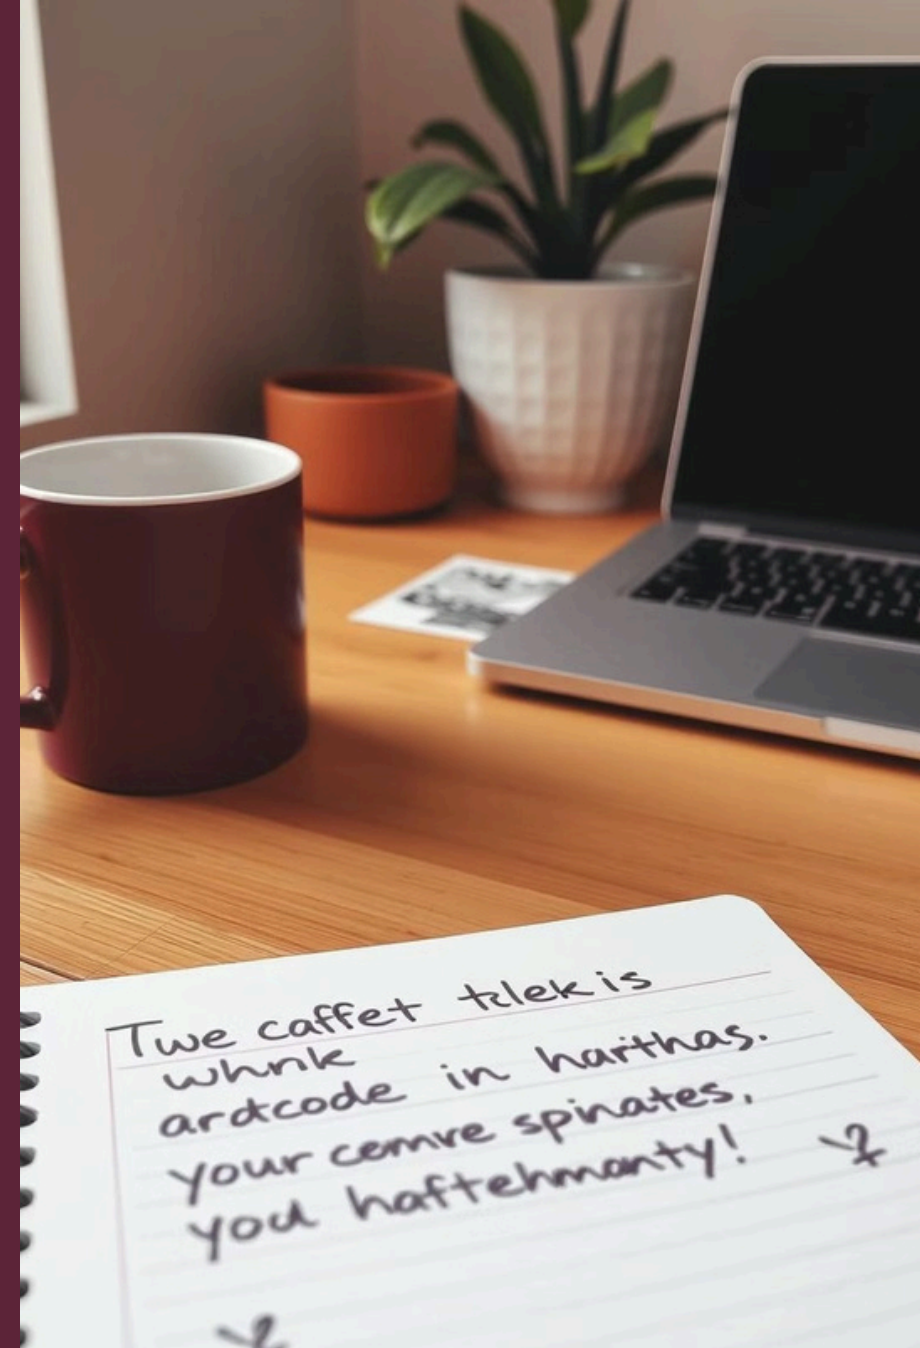 Twe caffet tzlek is
whnk
ardcode in harthas.
your cemre spinates,
you haftehmanty!